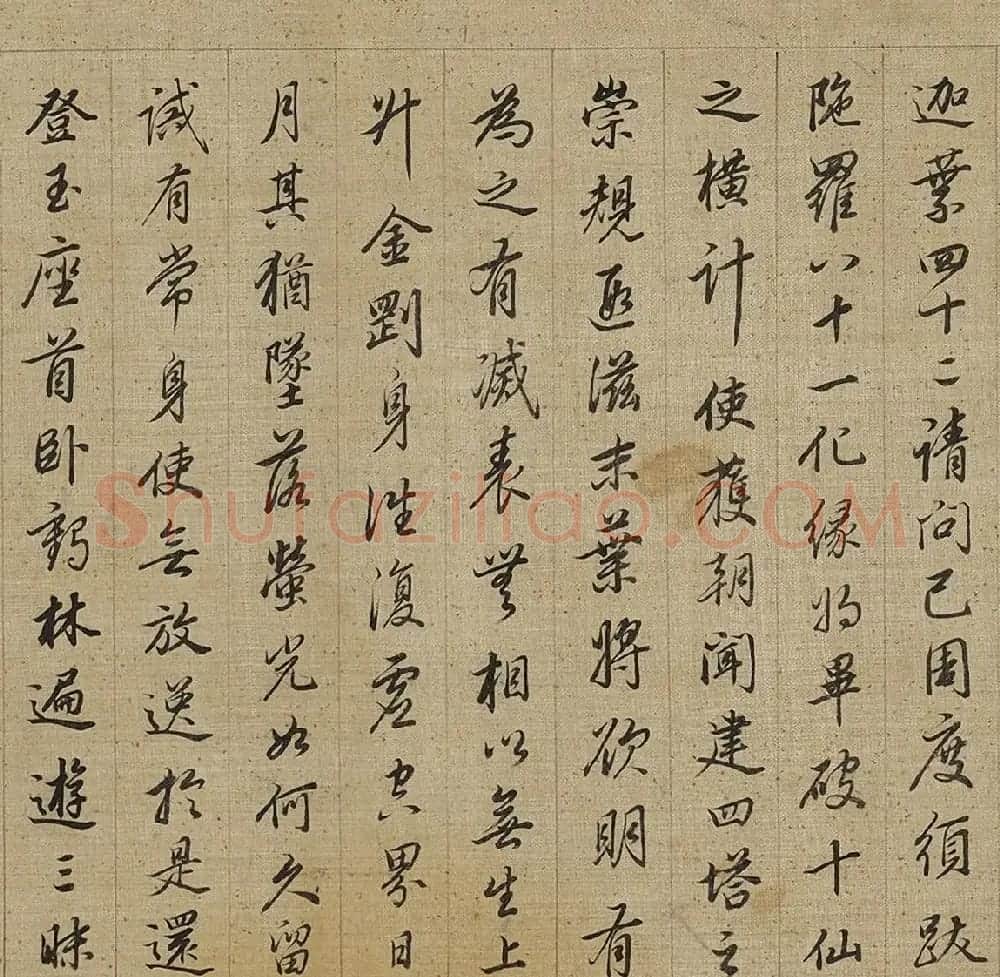 迦葉四十二請問已周度須跋
陁羅八十一化緣將畢破十仙
之橫計使獲朝聞建四塔之
崇規遐滋末葉將欲明有
為之有滅表無相以無生上
升金剛身性復虛空界日
月其猶墜落螢光如何久留
誡有常身使無放逸於是還
登玉座首卧鶴林遍遊三昧
Shufaziliao.COM